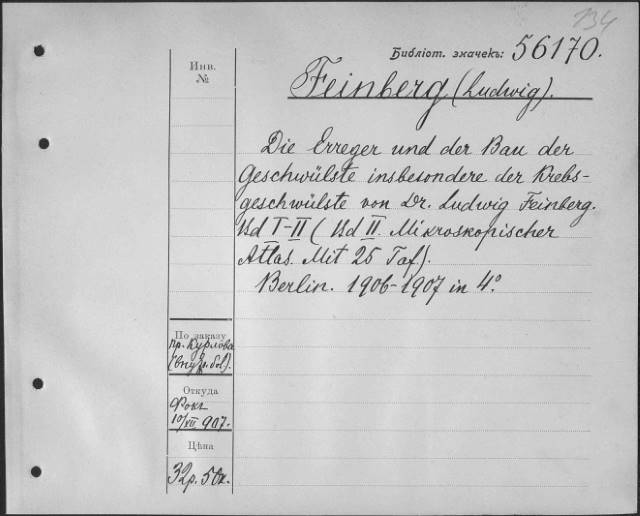 134
Библіот. значекъ: 56170.
Инв.
№
Feinberg (Ludwig).
Die Erreger und der Bau der
Geschwülste insbesondere der Krebs-
geschwülste von Dr. Ludwig Feinberg.
Bd I-II (Bd II. Mikroskopischer
Atlas. Mit 25 Taf.).
Berlin. 1906-1907 in 4°
По заказу
пр. Курлова
(внутр. бол).
Откуда
Фокъ
10/XII 907.
Цѣна
32р. 50к.